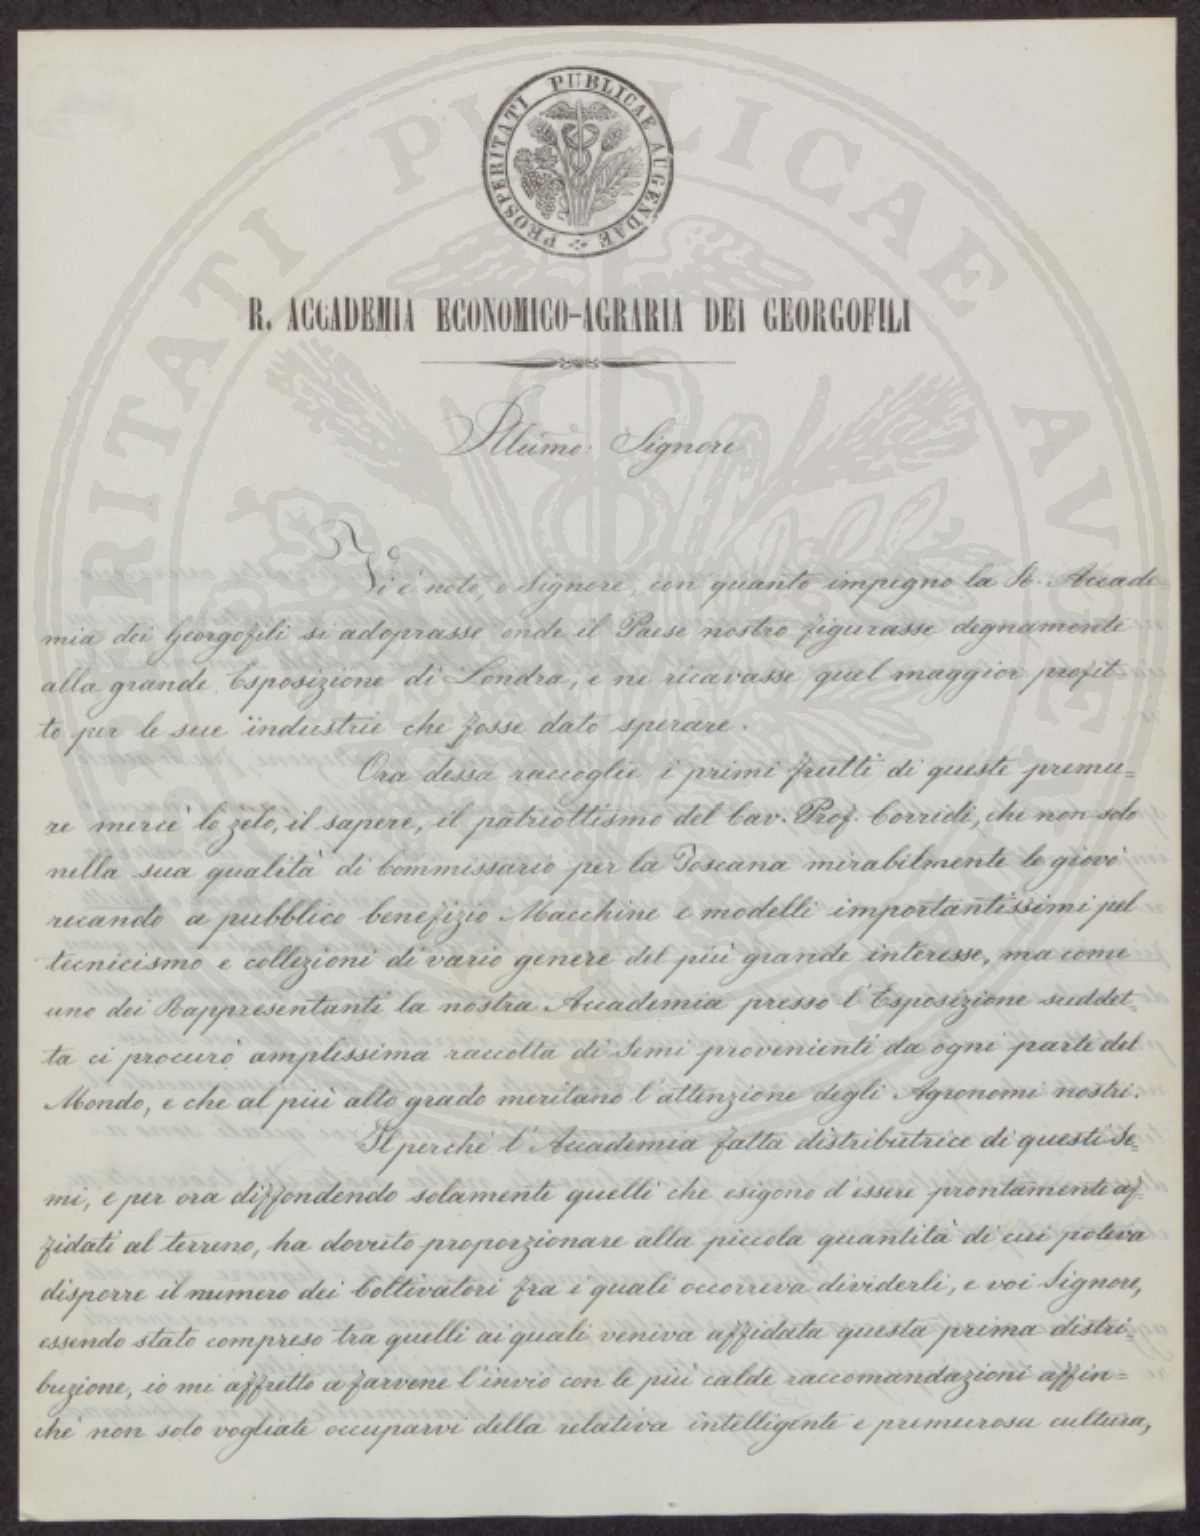 PROSPERITATI PUBLICAE AUGENDAE
R. ACCADEMIA ECONOMICO-AGRARIA DEI GEORGOFILI
Illumo: Signore
Vi è noto, o Signore, con quanto impegno la R. Accade-
mia dei Georgofili si adoprasse onde il Paese nostro figurasse degnamente
alla grande Esposizione di Londra, e ne ricavasse quel maggior profit-
to per le sue industrie che fosse dato sperare.
Ora dessa raccoglie i primi frutti di queste premu=
re mercè lo zelo, il sapere, il patriottismo del Cav. Prof. Corridi, che non solo
nella sua qualità di Commissario per la Toscana mirabilmente le giovò
recando a pubblico benefizio Macchine e modelli importantissimi pel
tecnicismo e collezioni di vario genere del più grande interesse, ma come
uno dei Rappresentanti la nostra Accademia presso l'Esposizione suddet-
ta ci procurò amplissima raccolta di Semi provenienti da ogni parte del
Mondo, e che al più alto grado meritano l'attenzione degli Agronomi nostri.
Il perchè l'Accademia fatta distributrice di questi Se=
mi, e per ora diffondendo solamente quelli che esigono d'essere prontamente af-
fidati al terreno, ha dovuto proporzionare alla piccola quantità di cui poteva
disporre il numero dei Coltivatori fra i quali occorreva dividerli, e voi Signore,
essendo stato compreso tra quelli ai quali veniva affidata questa prima distri-
buzione, io mi affretto a farvene l'invio con le più calde raccomandazioni affin=
chè non solo vogliate occuparvi della relativa intelligente e premurosa cultura,